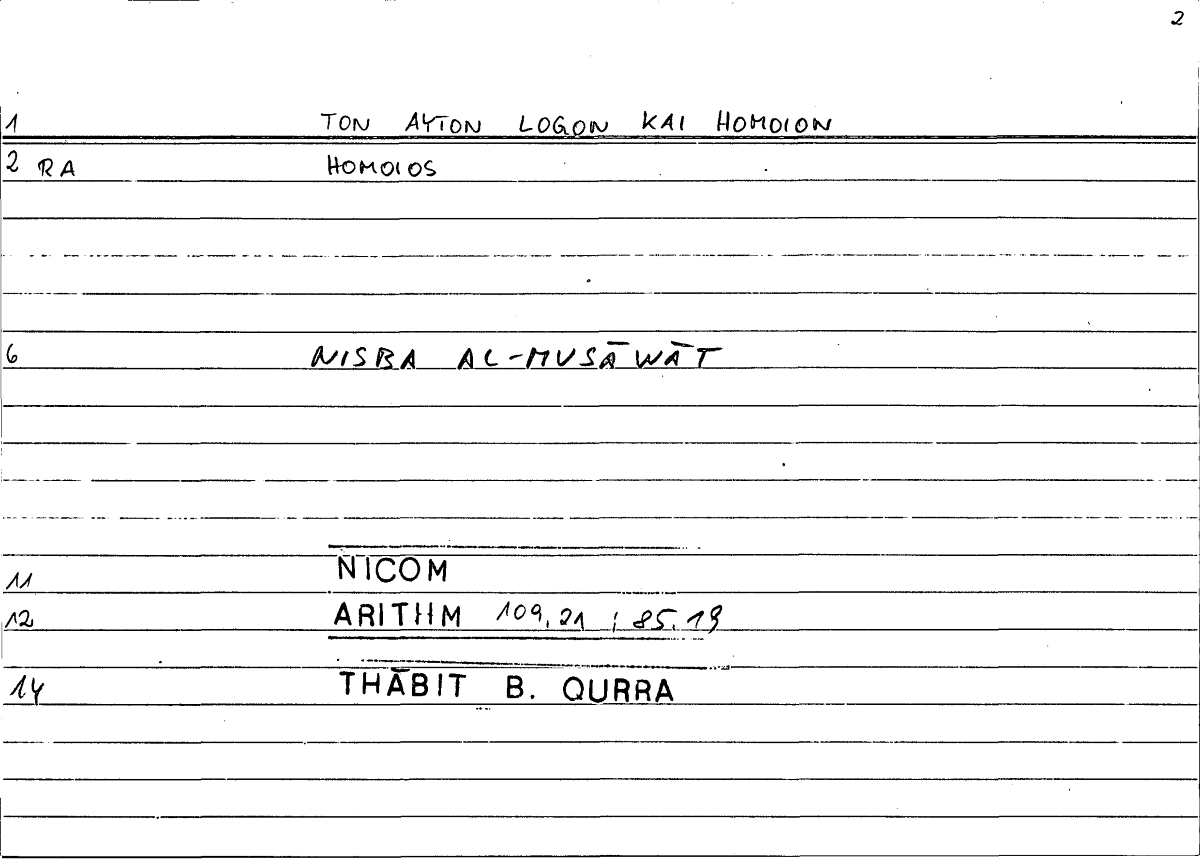 2
1 TON AYTON LOGON KAI HOMOION
2 RA HOMOIOS
6 NISBA AL-MUSĀWĀT
11 NICOM
12 ARITHM 109,21 ; 85,19
14 THĀBIT B. QURRA